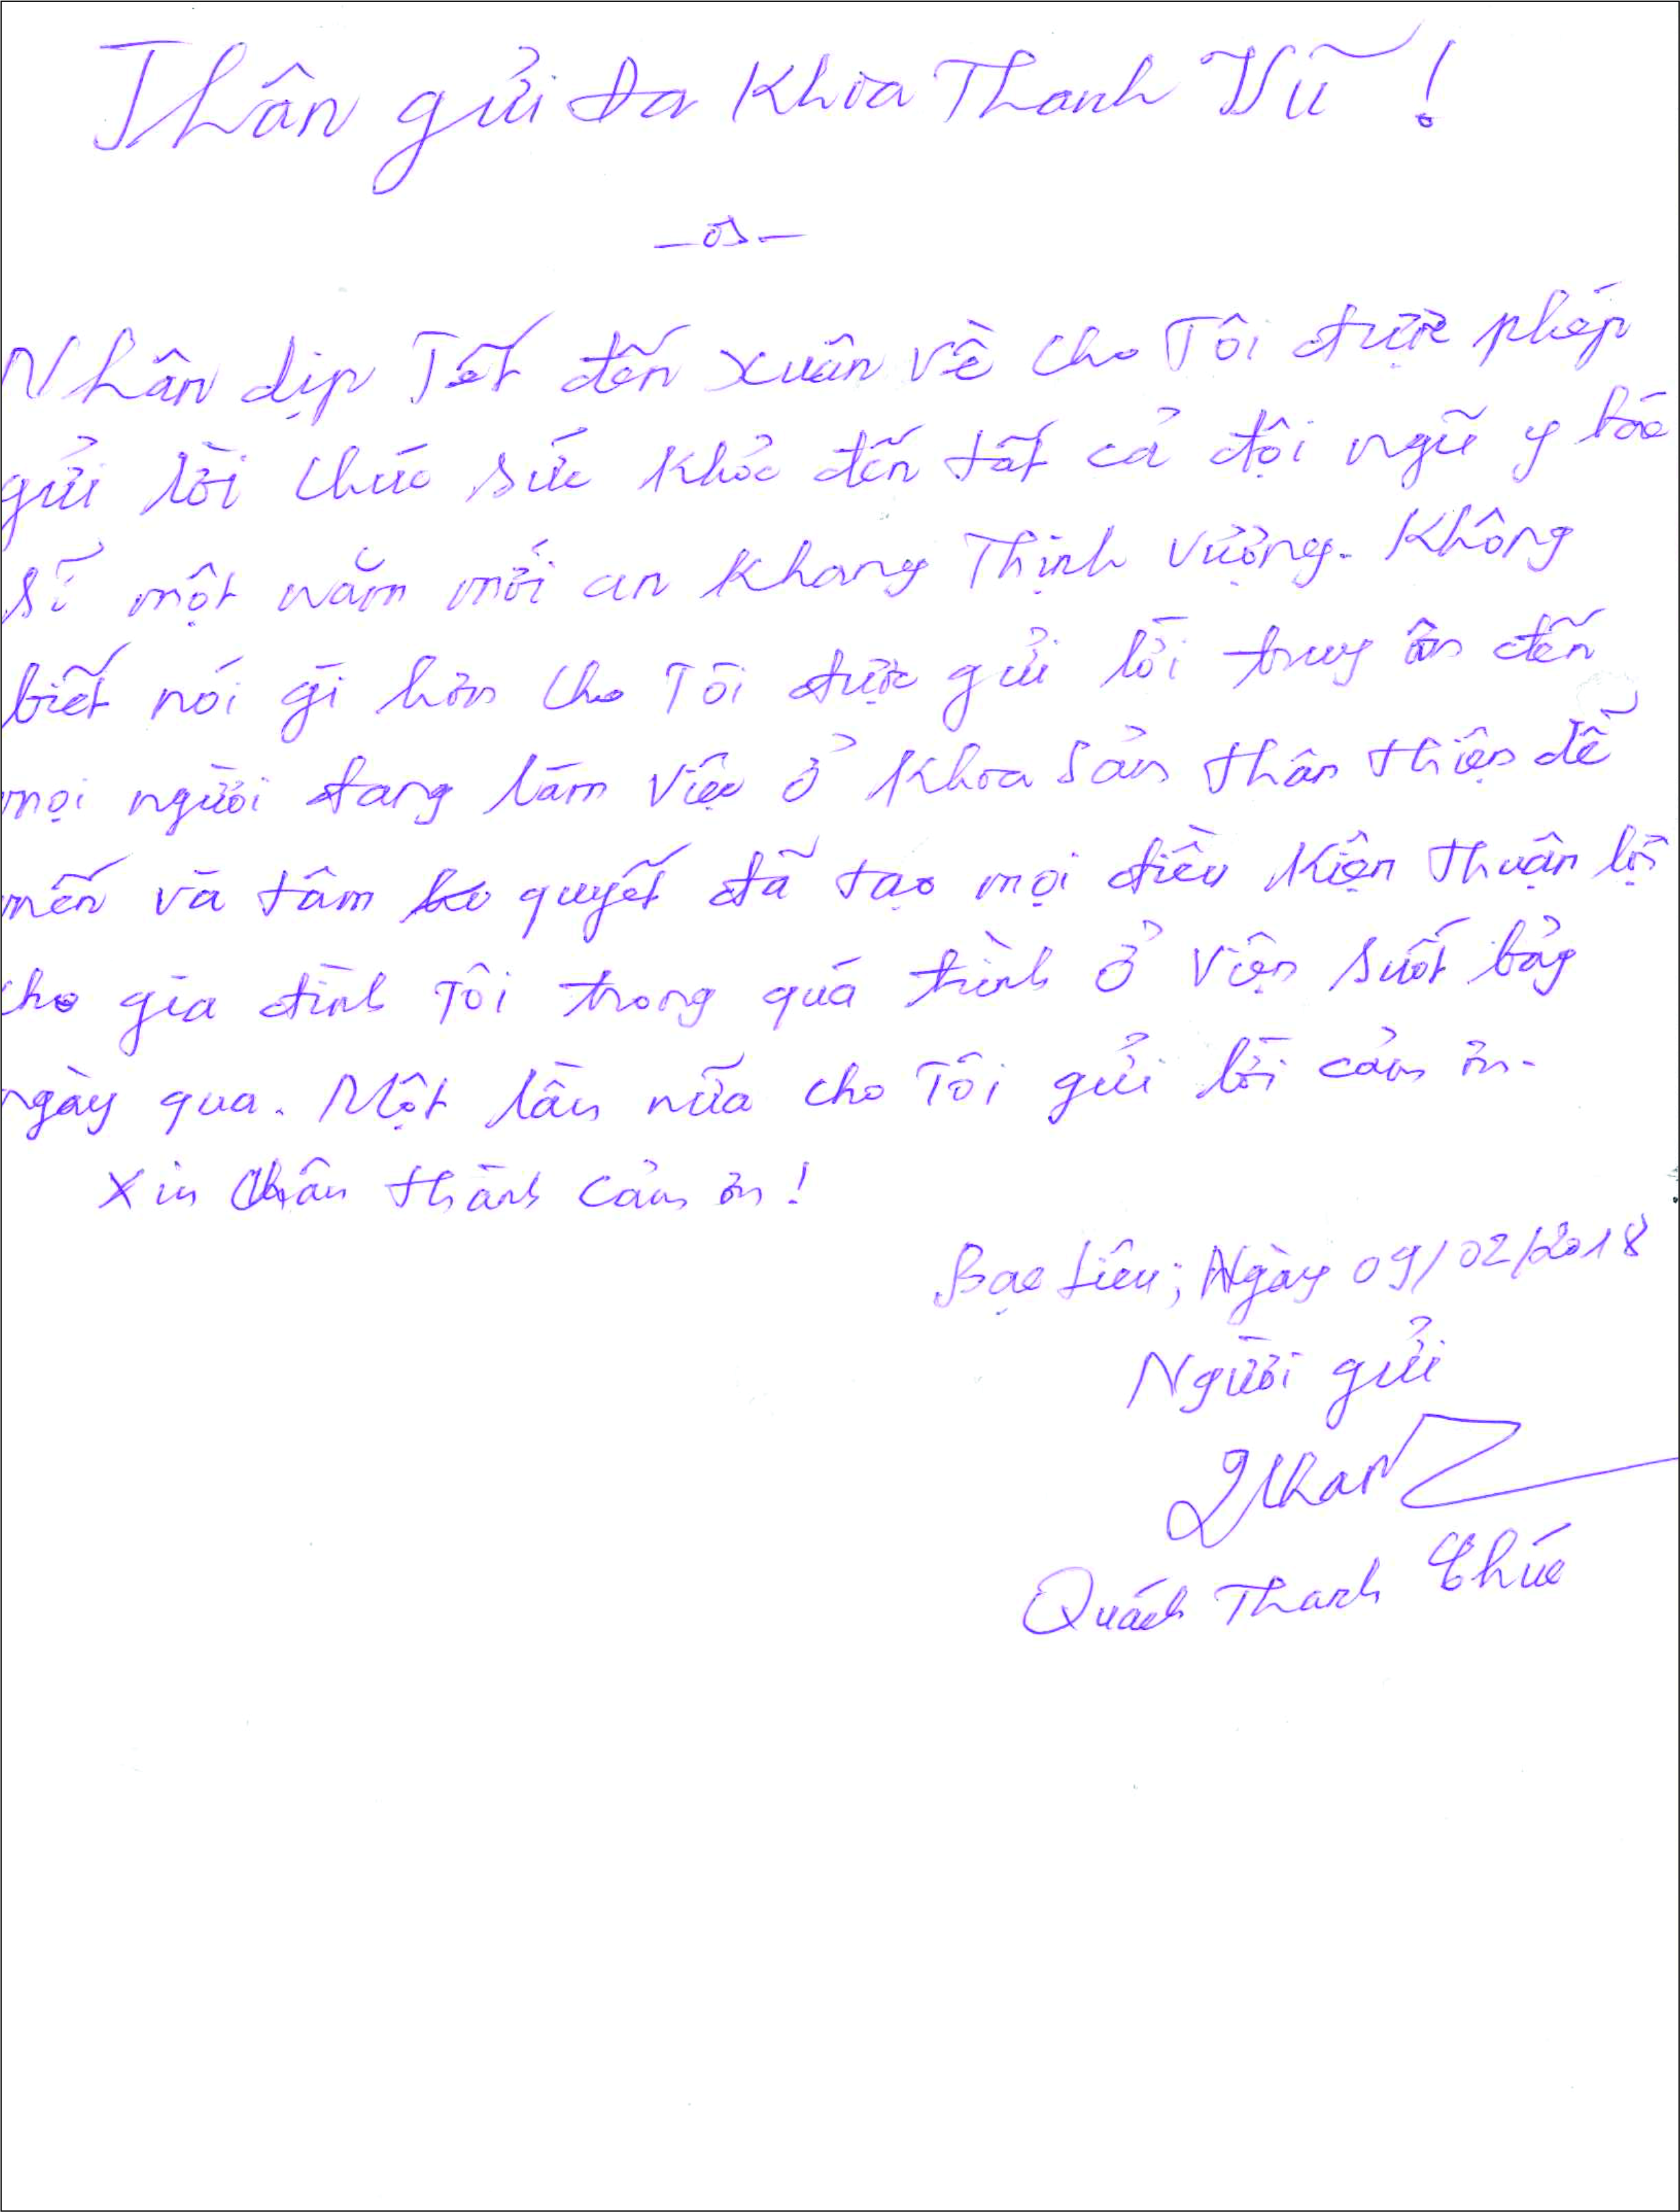 Thân gửi Đa Khoa Thanh Vũ !
Nhân dịp Tết đến xuân về cho Tôi được phép
gửi lời chúc sức khỏe đến tất cả đội ngũ y bác
sĩ một năm mới an khang Thịnh vượng. Không
biết nói gì hơn cho Tôi được gửi lời truy ân đến
mọi người đang làm việc ở khoa sản thân thiện dễ
mến và tâm quyết đã tạo mọi điều kiện thuận lợi
cho gia đình Tôi trong quá trình ở viện suốt bảy
ngày qua. Một lần nữa cho Tôi gửi lời cảm ơn.
Xin chân thành cảm ơn !
Bạc Liêu; Ngày 09/02/2018
Người gửi
Quách Thanh Chúc